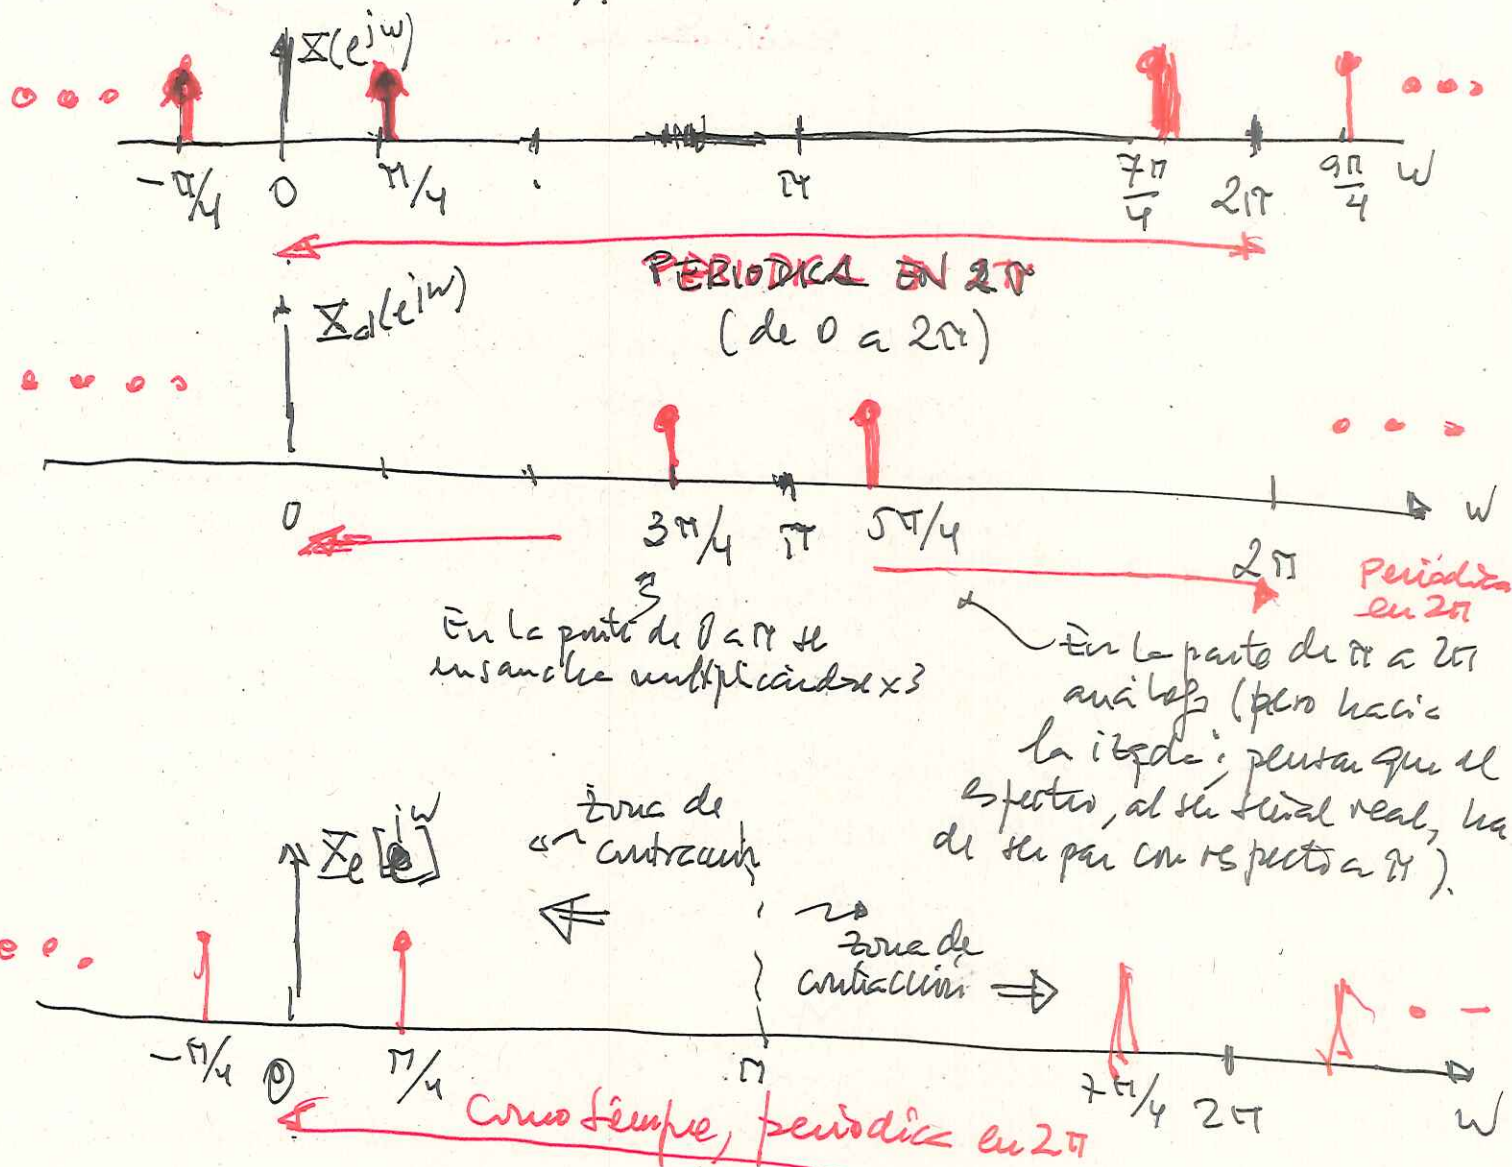 X(e^jw)
-π/4 0 π/4 π 7π/4 2π 9π/4 w
PERIODICA EN 2π
(de 0 a 2π)
Xd(e^jw)
0 3π/4 π 5π/4 2π w
Periódica
en 2π
En la parte de 0 a π se
ensancha multiplicándose x3
En la parte de π a 2π
análogo (pero hacia
la izqda; pensar que el
espectro, al ser señal real, ha
de ser par con respecto a π).
Xe[e^jw]
zona de
contracción
zona de
contracción
-π/4 0 π/4 π 7π/4 2π w
Como siempre, periódica en 2π